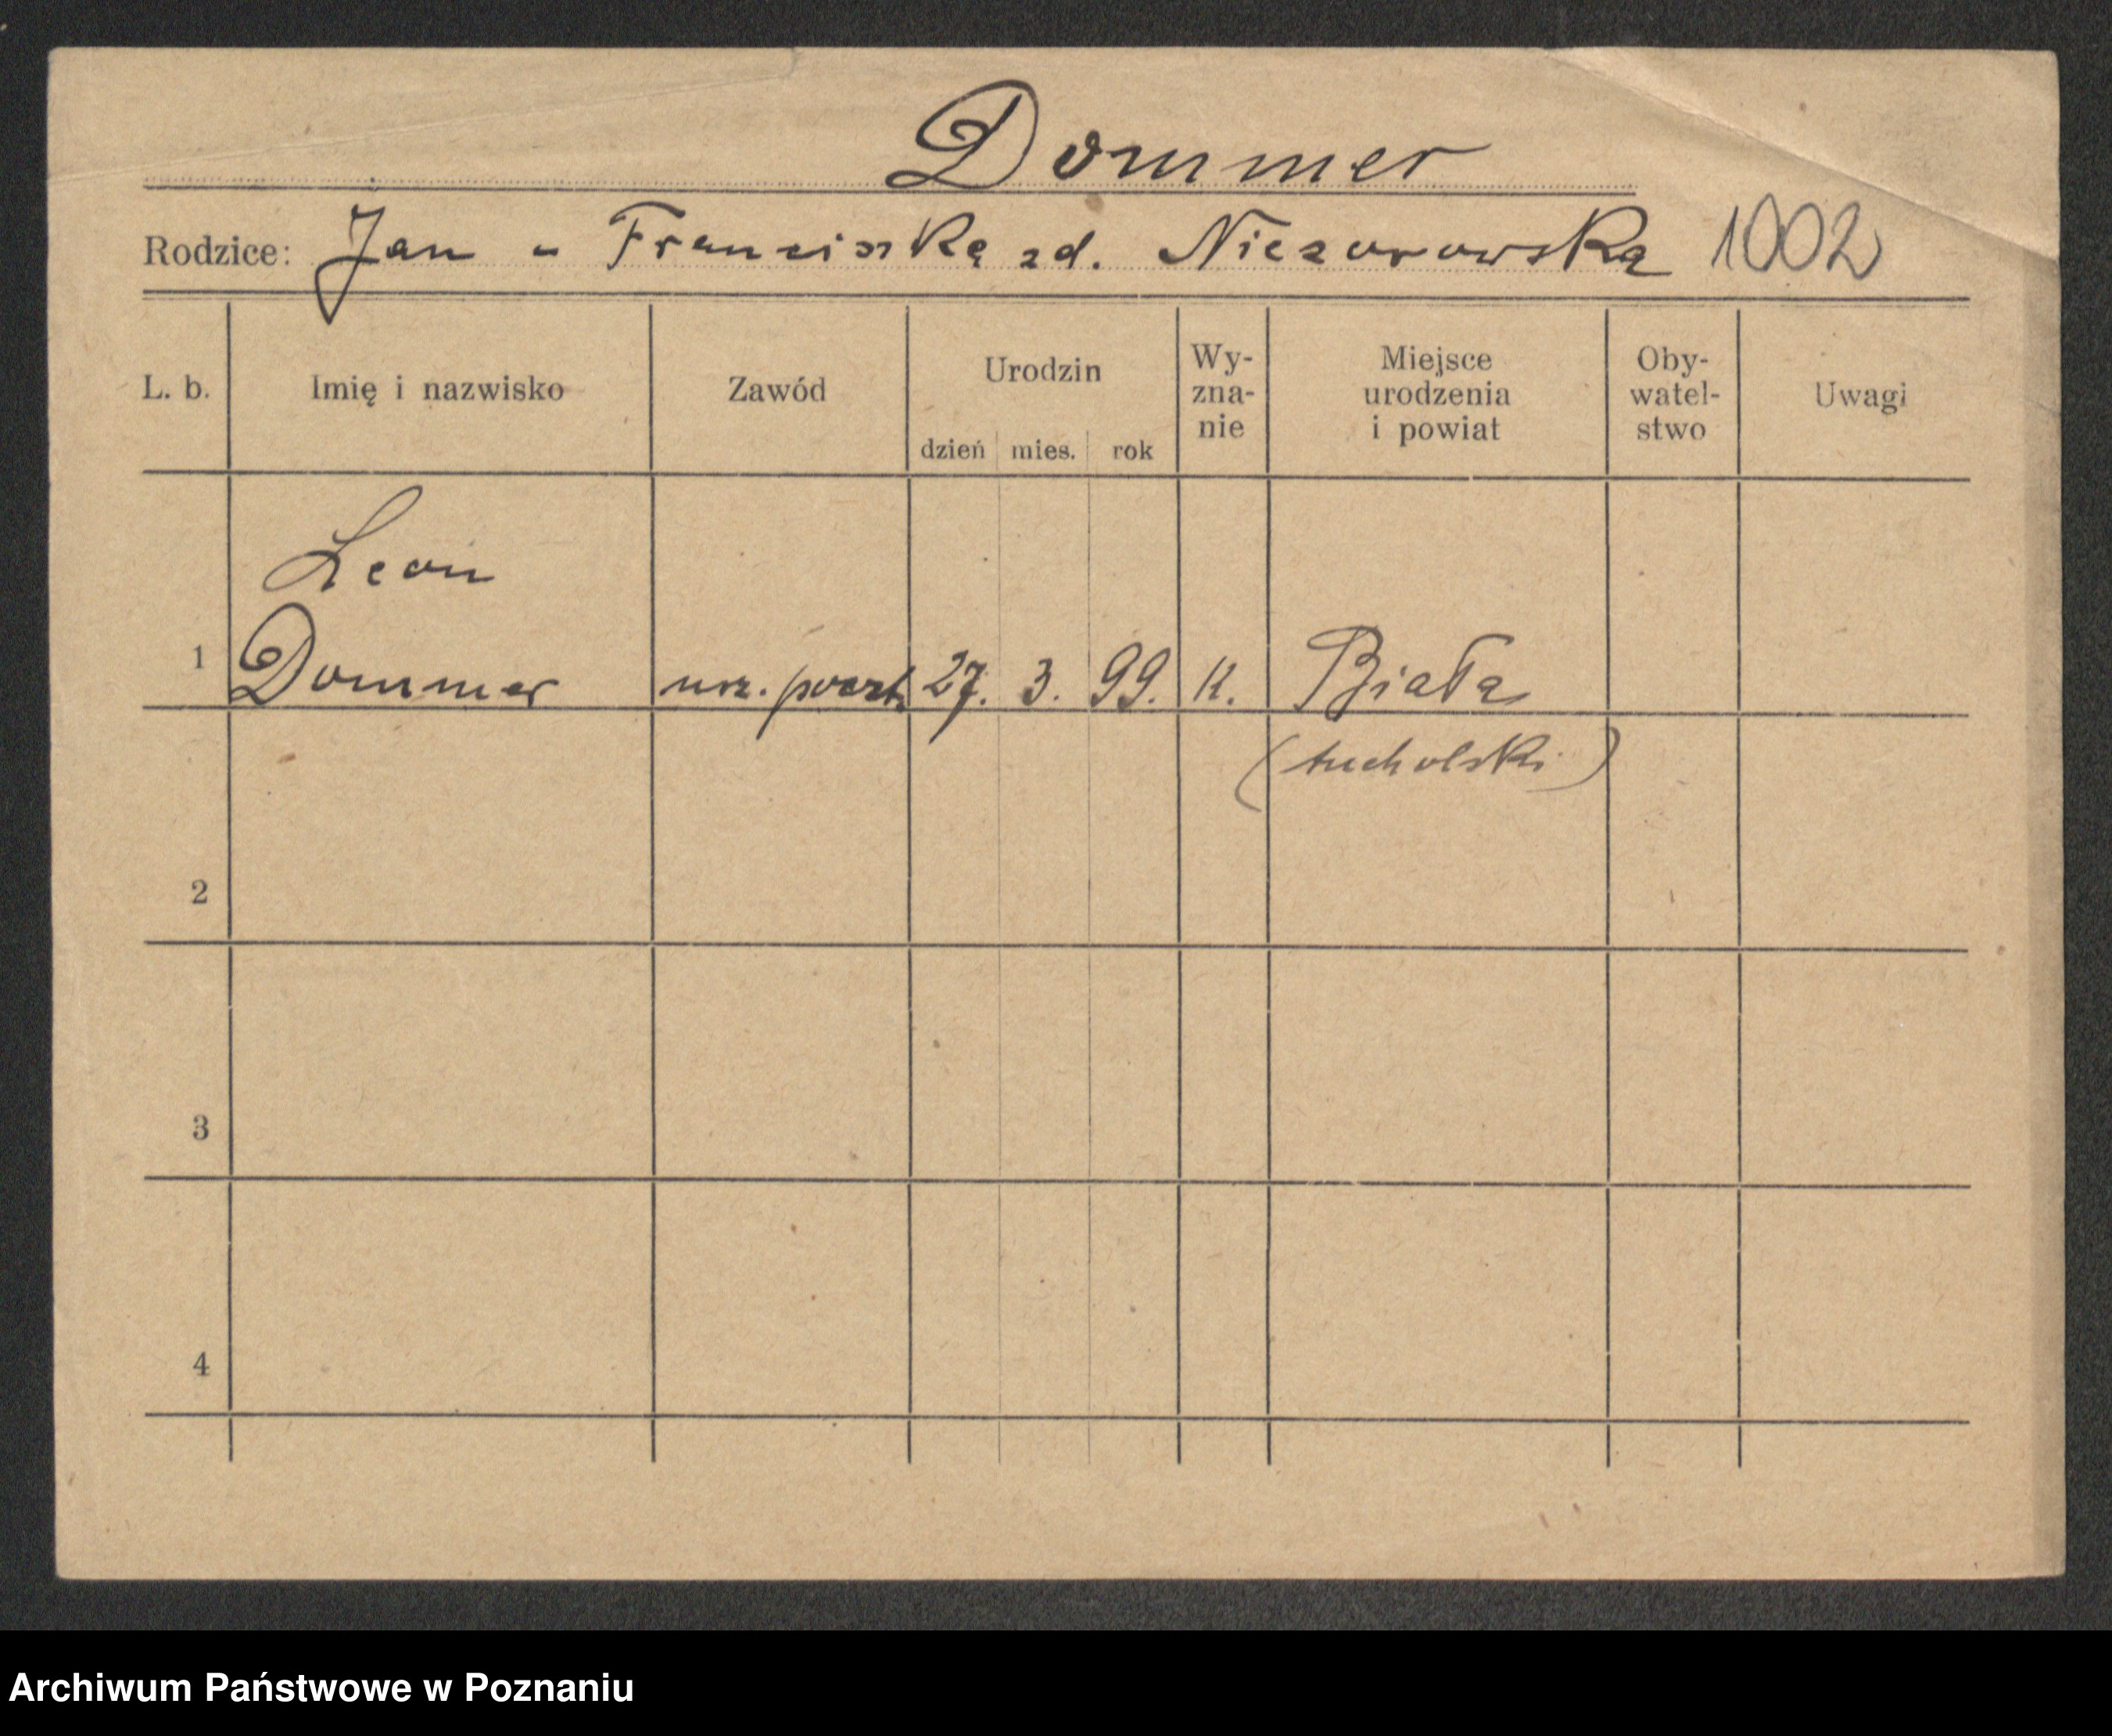 Dommer
Rodzice: Jan - Franciszka zd. Niezorowska 1002
L. b. Imię i nazwisko Zawód Urodzin dzień mies. rok Wy-zna-nie Miejsce urodzenia i powiat Oby-watel-stwo Uwagi
Leon
1 Dommer urz. poczt. 27. 3. 99. k. Biała
(tucholski)
2
3
4
Archiwum Państwowe w Poznaniu